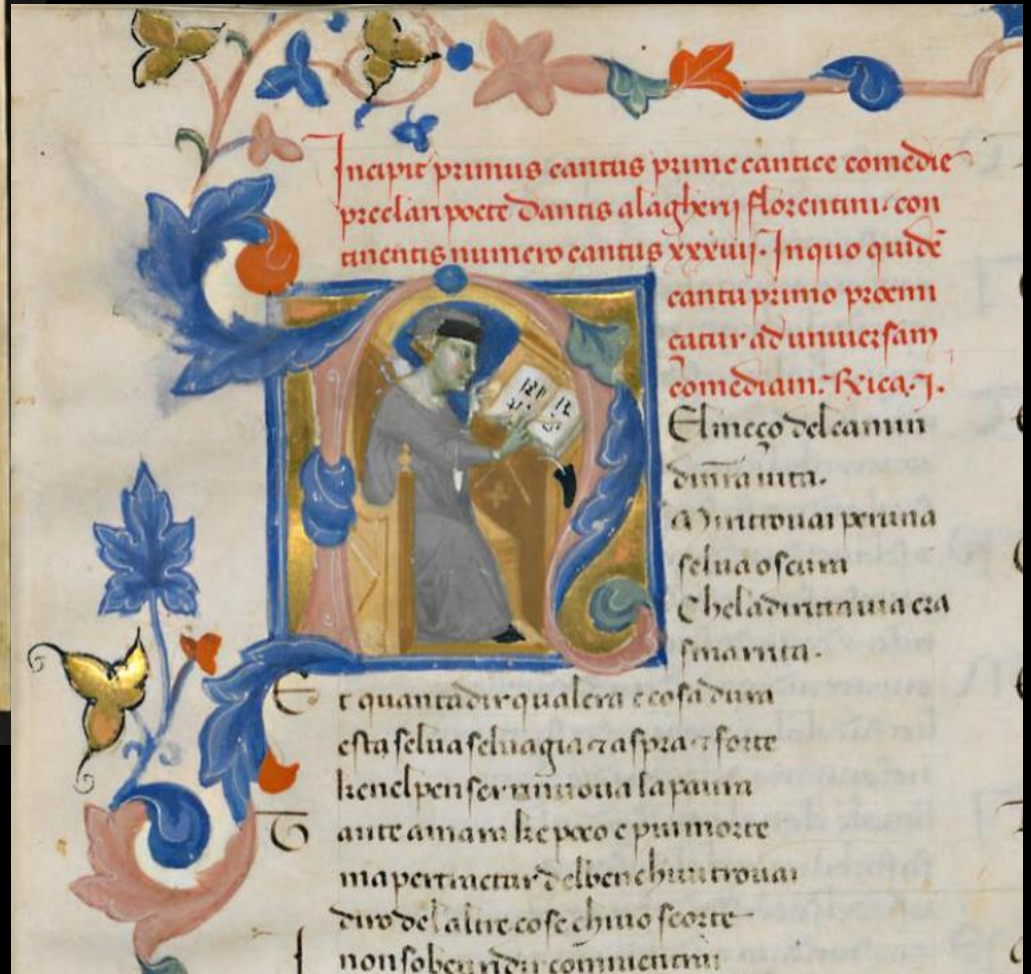 Incipit primus cantus prime cantice comedie
preclari poete dantis alagherij florentini. con
tinentis numero cantus xxxiiij. In quo quidē
cantu primo proemi
catur ad universam
comediam. Rica. J.
El meço del camin
di nr̄a vita.
Mi ritrovai per una
selva oscura
Che la diritta via era
smarrita.
Et quanta dir qual era e cosa dura
esta selva selvagia ⁊ aspra ⁊ forte
ke nel penser rinnova la paura
Tanto amara ke poco e piu morte
ma per tractar del ben ch i vi trovai
diro de l altre cose ch i vo scorte
I non so ben ridir com i v entrai